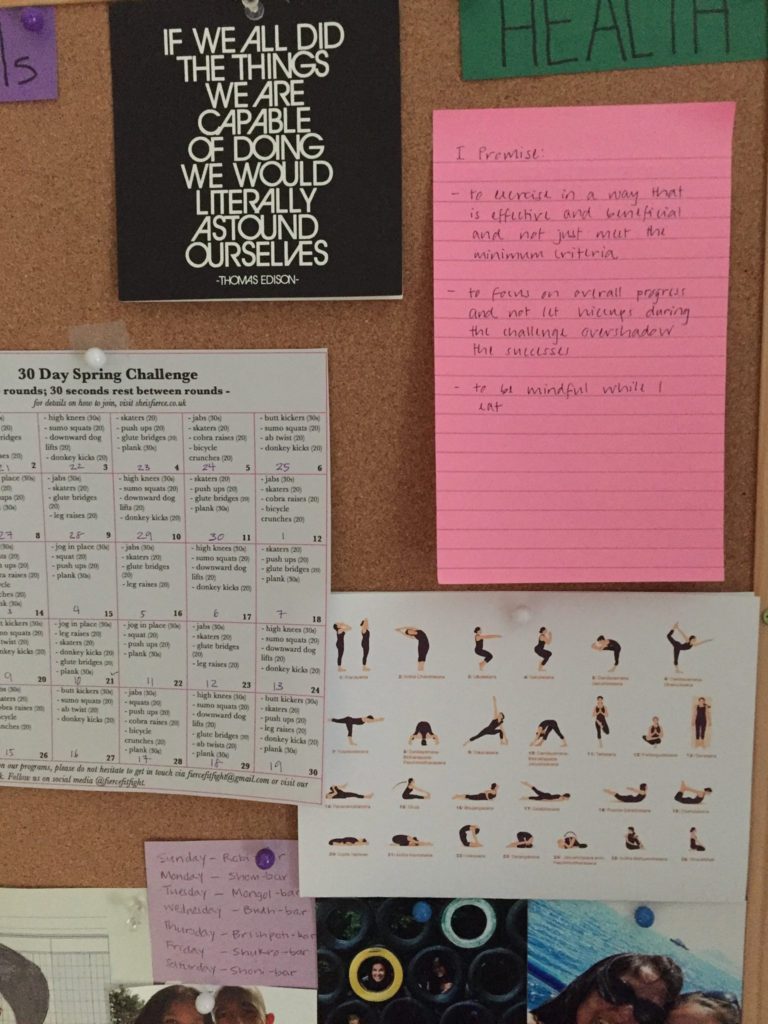 ls
IF WE ALL DID
THE THINGS
WE ARE
CAPABLE
OF DOING
WE WOULD
LITERALLY
ASTOUND
OURSELVES
-THOMAS EDISON-
HEALTH
I Promise:
- to exercise in a way that
is effective and beneficial
and not just meet the
minimum criteria
- to focus on overall progress
and not let hiccups during
the challenge overshadow
the successes
- to be mindful while I
eat
30 Day Spring Challenge
rounds; 30 seconds rest between rounds -
for details on how to join, visit sheisfierce.co.uk
2
- high knees (30s)
- sumo squats (20)
- downward dog
lifts (20)
- donkey kicks (20)
22 3
- skaters (20)
- push ups (20)
- glute bridges (20)
- plank (30s)
23 4
- jabs (30s)
- skaters (20)
- cobra raises (20)
- bicycle
crunches (20)
24 5
- butt kickers (30s)
- sumo squats (20)
- ab twist (20)
- donkey kicks (20)
25 6
27 8
- jabs (30s)
- skaters (20)
- glute bridges
(20)
- leg raises (20)
28 9
- high knees (30s)
- sumo squats (20)
- downward dog
lifts (20)
- donkey kicks (20)
29 10
- skaters (20)
- push ups (20)
- glute bridges (20)
- plank (30s)
30 11
- jabs (30s)
- skaters (20)
- cobra raises (20)
- bicycle
crunches (20)
1 12
3 14
- jog in place (30s)
- squat (20)
- push ups (20)
- plank (30s)
4 15
- jabs (30s)
- skaters (20)
- glute bridges
(20)
- leg raises (20)
5 16
- high knees (30s)
- sumo squats (20)
- downward dog
lifts (20)
- donkey kicks (20)
6 17
- skaters (20)
- push ups (20)
- glute bridges (20)
- plank (30s)
7 18
9 20
- jog in place (30s)
- leg raises (20)
- skaters (20)
- donkey kicks (20)
- glute bridges (20)
- plank (30s)
10 21
- jog in place (30s)
- squat (20)
- push ups (20)
- plank (30s)
11 22
- jabs (30s)
- skaters (20)
- glute bridges
(20)
- leg raises (20)
12 23
- high knees (30s)
- sumo squats (20)
- downward dog
lifts (20)
- donkey kicks (20)
13 24
15 26
- butt kickers (30s)
- sumo squats (20)
- ab twist (20)
- donkey kicks (20)
16 27
- jabs (30s)
- squats (20)
- push ups (20)
- cobra raises (20)
- bicycle
crunches (20)
- plank (30s)
17 28
- high knees (30s)
- sumo squats (20)
- downward dog
lifts (20)
- glute bridges (20)
- ab twists (20)
- plank (30s)
18 29
- butt kickers (30s)
- skaters (20)
- push ups (20)
- leg raises (20)
- donkey kicks (20)
- plank (30s)
19 30
on our programs, please do not hesitate to get in touch via fiercefitfight@gmail.com or visit our
Follow us on social media @fiercefitfight.
Sunday - Robi
Monday - Shom-bar
Tuesday - Mongol-bar
Wednesday - Budh-bar
Thursday - Brishpoti-bar
Friday - Shukro-bar
Saturday - Shoni-bar